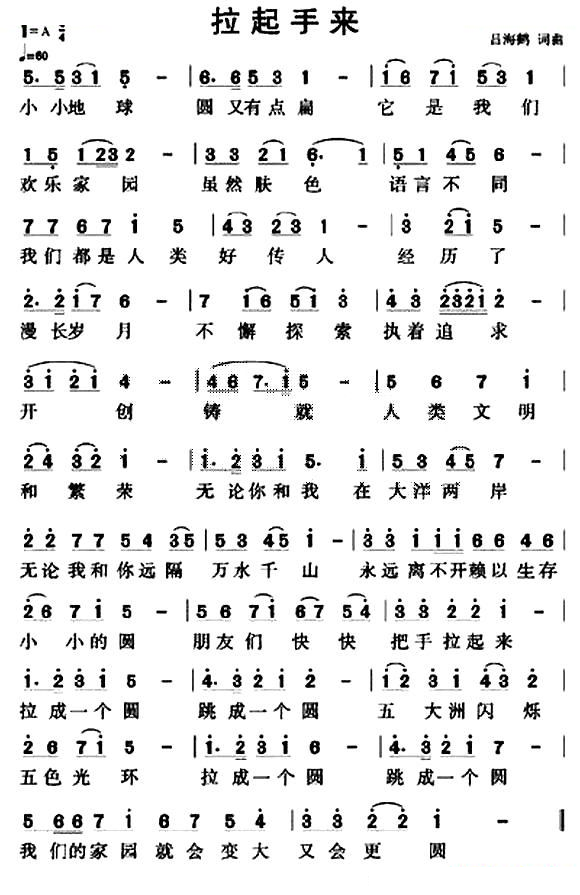 拉起手来
1=A 2/4
♩=60
吕海鹤 词曲
5. 5 3 1 5 - | 6. 6 5 3 1 - | 1 6 7 1 5 3 1 |
小 小地 球 圆 又有点 扁 它 是 我 们
1 5 1 2 3 2 - | 3 3 2 1 6. 1 | 5 1 4 5 6 - |
欢乐家 园 虽然肤 色 语言不 同
7 7 6 7 1 5 | 4 3 2 3 1 - | 3 2 1 5 |
我们都是人 类 好 传 人 经 历 了
2. 2 1 7 6 - | 7 1 6 5 1 3 | 4 3 2 3 2 1 2 - |
漫 长岁 月 不 懈 探 索 执着 追 求
3 1 2 1 4 - | 4 6 7. 1 5 - | 5 6 7 1 |
开 创 铸 就 人 类 文 明
2 4 3 2 1 - | 1. 2 3 1 5. 1 | 5 3 4 5 7 - |
和 繁 荣 无 论你和 我 在 大 洋 两 岸
2 2 7 7 5 4 3 5 | 5 3 4 5 1 - | 3 3 1 1 6 6 4 6 |
无论我和你远隔 万水千 山 永远离不开赖以生存
2 6 7 1 5 | 5 6 7 1 6 7 5 4 | 3 3 2 2 1 - |
小 小的 圆 朋友们 快 快 把手拉起来
1. 2 3 1 5 - | 4. 3 2 1 2 - | 1 2 3 1 4 3 2 |
拉 成一个 圆 跳 成一个 圆 五 大洲闪 烁
2 6 7 1 5 - | 1. 2 3 1 6 - | 4. 3 2 1 5 - |
五色光 环 拉 成一个 圆 跳 成一个 圆
5 6 6 7 1 6 7 5 4 | 3 3 2 1 - |
我们的家园就会变大 又会更 圆